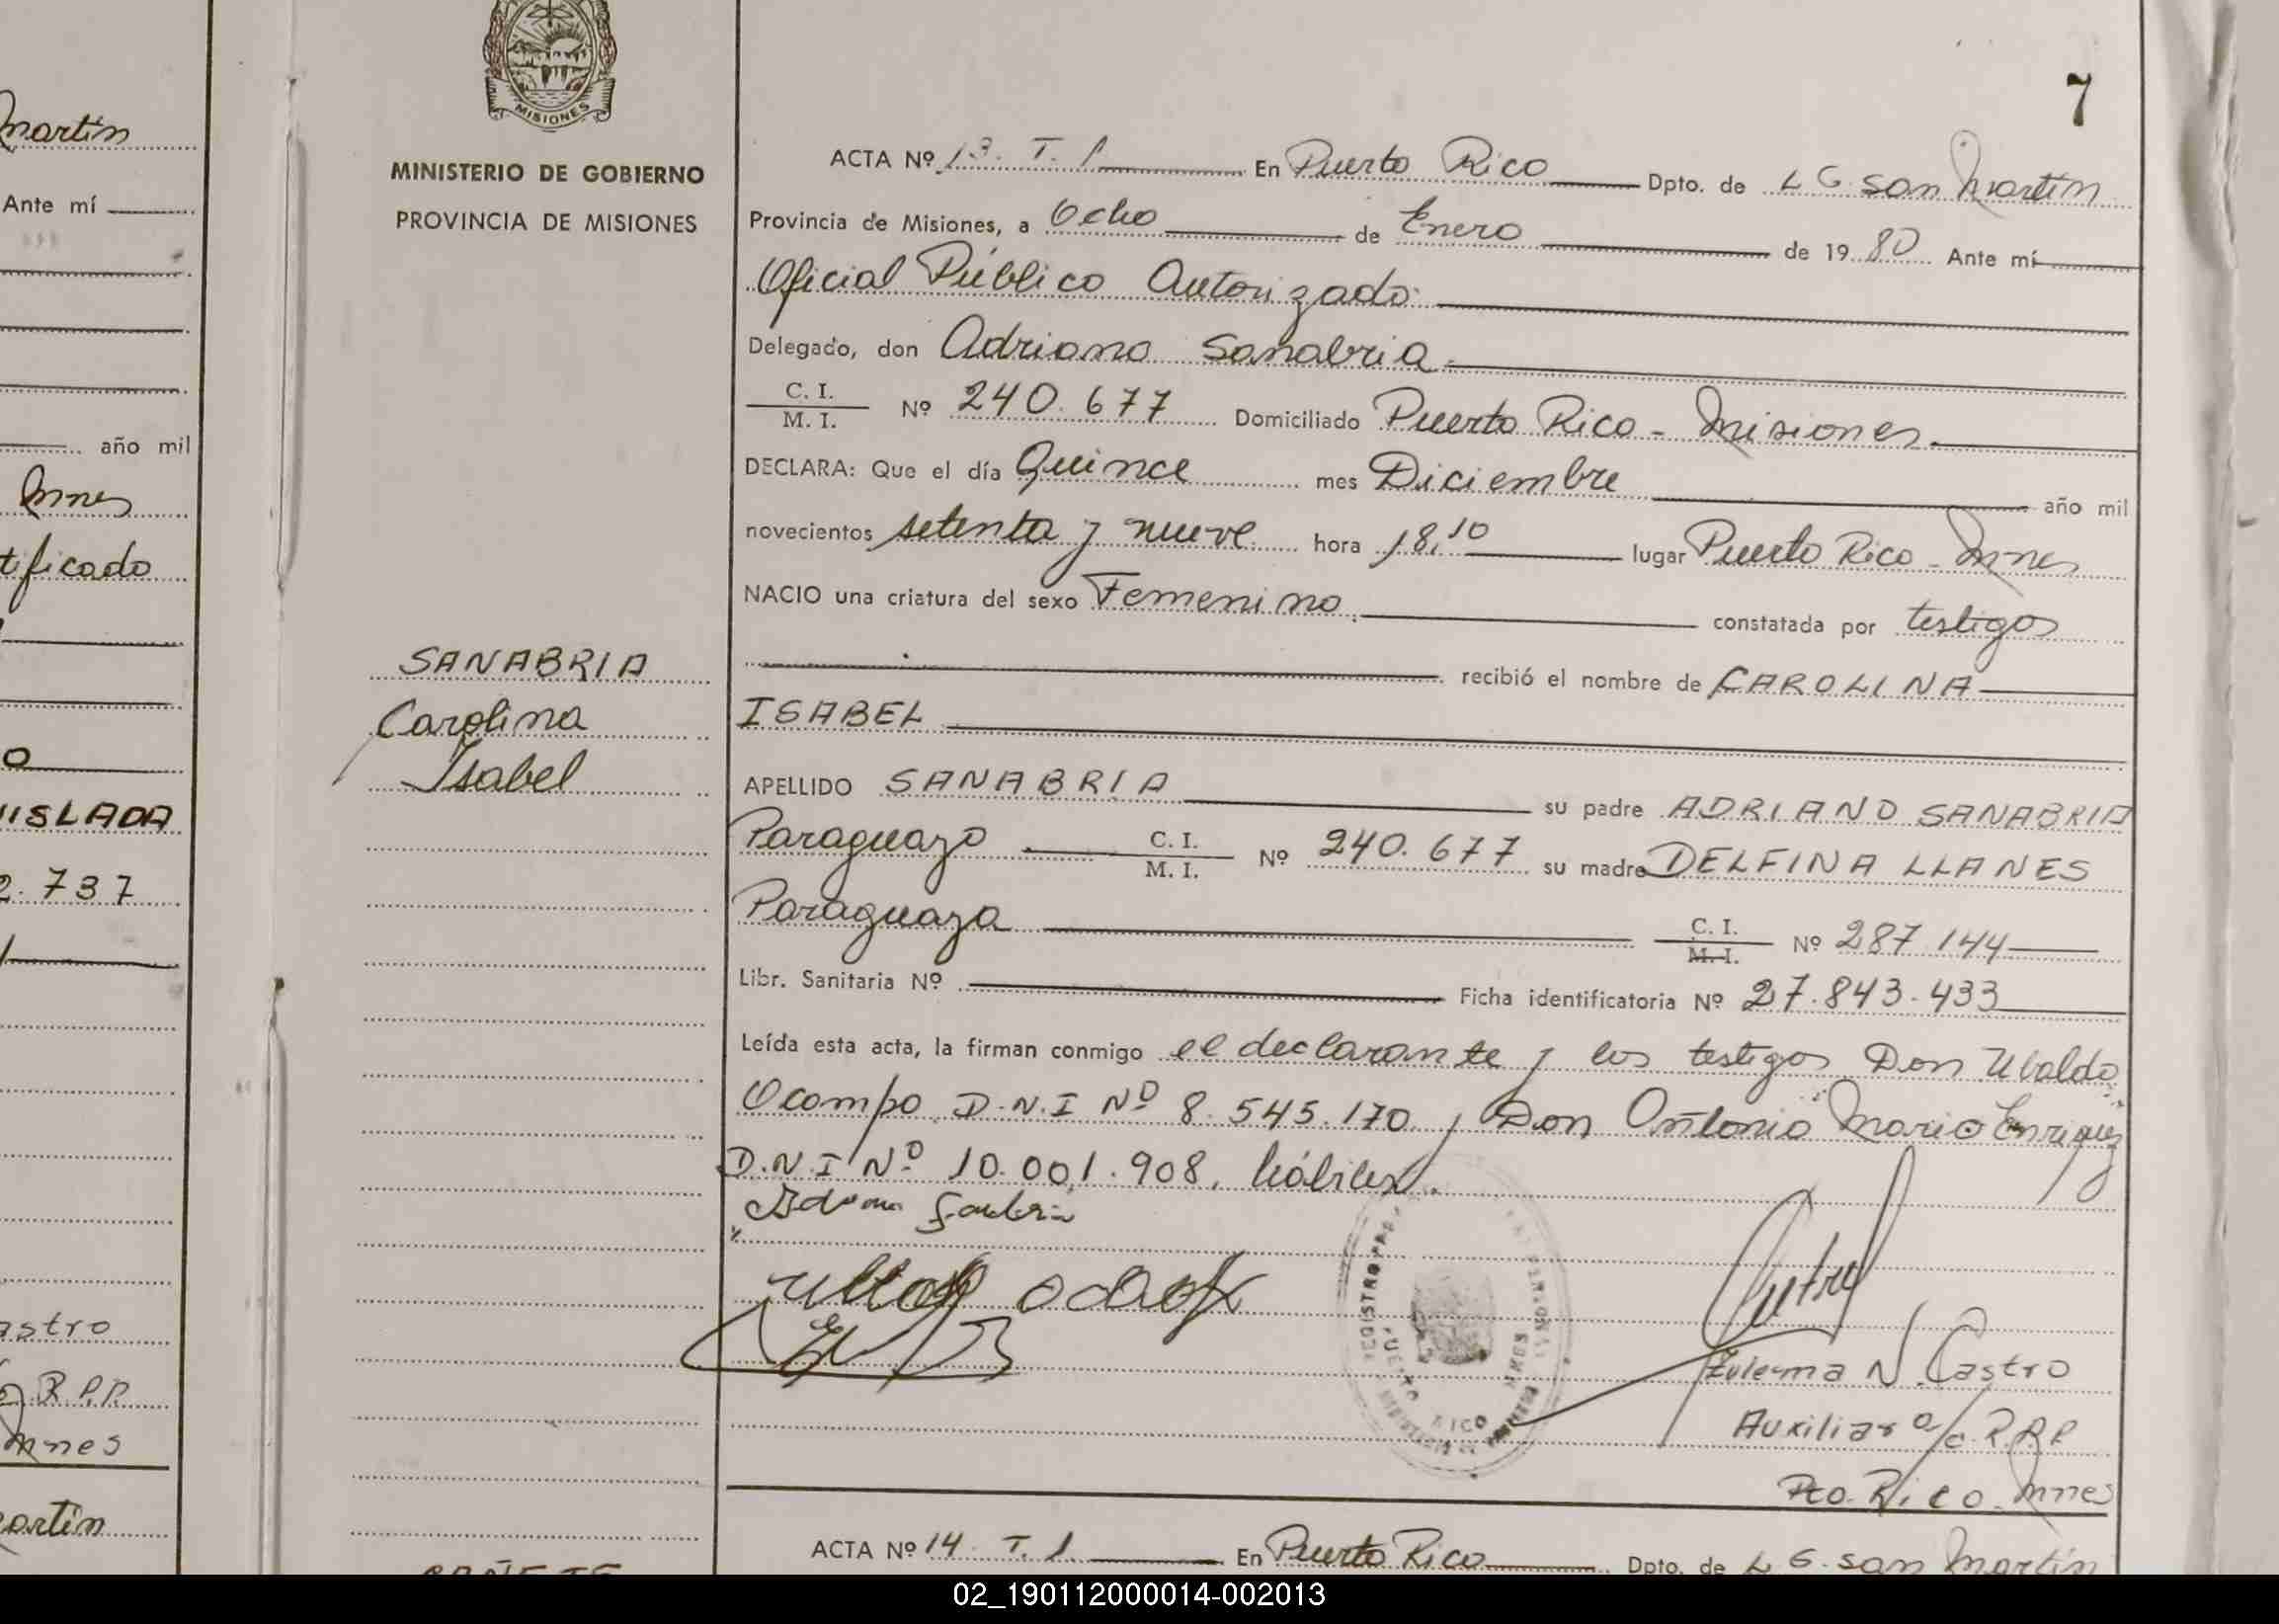 7
MISIONES
MINISTERIO DE GOBIERNO
PROVINCIA DE MISIONES
martín
Ante mí
año mil
Mnes
tificado
O
UISLADA
2.737
astro
R.P.P.
Mnes
artín
SANABRIA
Carolina
Isabel
ACTA Nº 13. T. 1 En Puerto Rico Dpto. de L G. San Martín
Provincia de Misiones, a Ocho de Enero de 1980 Ante mí
Oficial Público Autorizado
Delegado, don Adriano Sanabria
C. I.
M. I. Nº 240.677 Domiciliado Puerto Rico - Misiones
DECLARA: Que el día Quince mes Diciembre año mil
novecientos setenta y nueve hora 18,10 lugar Puerto Rico - Mnes
NACIO una criatura del sexo Femenino constatada por testigos
recibió el nombre de CAROLINA
ISABEL
APELLIDO SANABRIA su padre ADRIANO SANABRIA
Paraguayo C. I.
M. I. Nº 240.677 su madre DELFINA LLANES
Paraguaya C. I.
M. I. Nº 287.144
Libr. Sanitaria Nº Ficha identificatoria Nº 27.843.433
Leída esta acta, la firman conmigo el declarante y los testigos Don Ubaldo
Ocampo D.N.I Nº 8.545.170 y Don Antonio Mario Enriquez
D.N.I Nº 10.001.908, hábiles.
Zulema N. Castro
Auxiliar a/c R.P.P.
Pto. Rico - Mnes
PUERTO RICO
MNES
ACTA Nº 14 T. 1 En Puerto Rico Dpto. de L G. San Martín
02_190112000014-002013